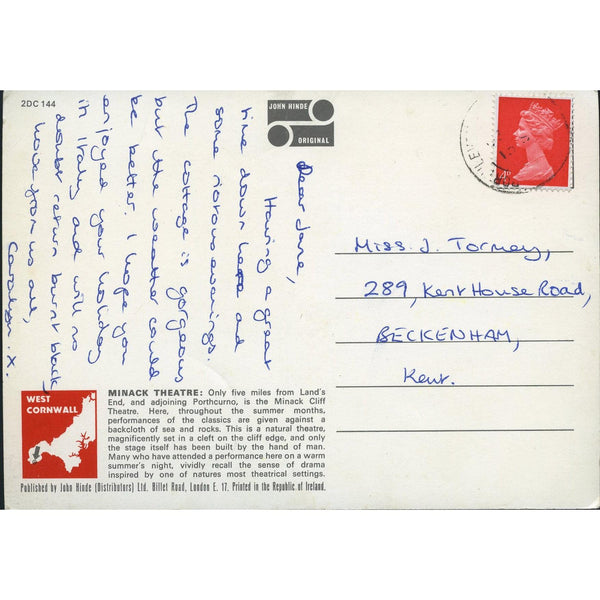 2DC 144
JOHN HINDE
ORIGINAL
Dear Jane,
Having a great
time down here and
some riotous evenings.
The cottage is gorgeous
but the weather could
be better. I hope you
enjoyed your holiday
in Italy and will no
doubt return burnt black,
love from us all,
Carolyn. x.
4P
Miss. J. Tormey,
289, Kent House Road,
BECKENHAM,
Kent.
WEST
CORNWALL
MINACK THEATRE: Only five miles from Land's
End, and adjoining Porthcurno, is the Minack Cliff
Theatre. Here, throughout the summer months,
performances of the classics are given against a
backcloth of sea and rocks. This is a natural theatre,
magnificently set in a cleft on the cliff edge, and only
the stage itself has been built by the hand of man.
Many who have attended a performance here on a warm
summer's night, vividly recall the sense of drama
inspired by one of natures most theatrical settings.
Published by John Hinde (Distributors) Ltd. Billet Road, London E. 17. Printed in the Republic of Ireland.